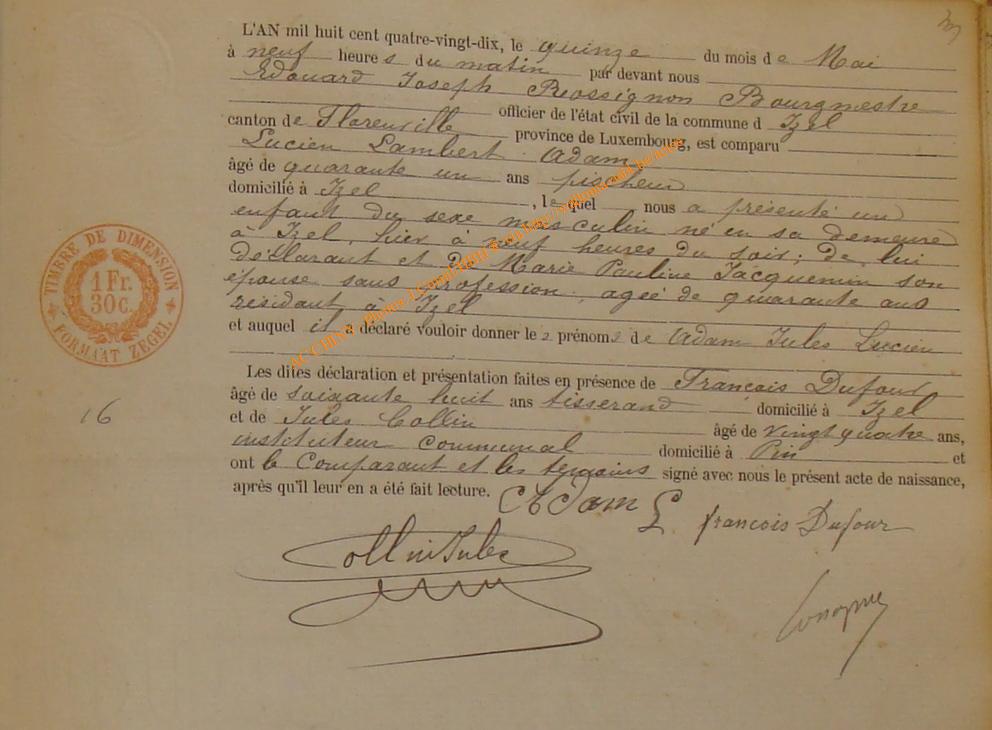 L'AN mil huit cent quatre-vingt-dix, le quinze du mois de Mai
à neuf heures du matin par devant nous
Edouard Joseph Rossignon Bourgmestre
officier de l'état civil de la commune d Izel
canton de Florenville province de Luxembourg, est comparu
Lucien Lambert Adam
âgé de quarante un ans piocheur
domicilié à Izel , lequel nous a présenté un
enfant du sexe masculin né en sa demeure
à Izel, hier à neuf heures du soir; de lui
déclarant et de Marie Pauline Jacquemin son
épouse sans profession, agée de quarante ans
résidant à Izel
et auquel il a déclaré vouloir donner les prénoms de Adam Jules Lucien
Les dites déclaration et présentation faites en présence de François Dufour
âgé de soixante huit ans tisserand domicilié à Izel
et de Jules Collin âgé de vingt quatre ans,
instituteur communal domicilié à Pin et
ont le Comparant et les temoins signé avec nous le présent acte de naissance,
après qu'il leur en a été fait lecture.
Adam L françois Dufour
Collin Jules
16
TIMBRE DE DIMENSION
1 Fr.
30c.
FORMAAT ZEGEL